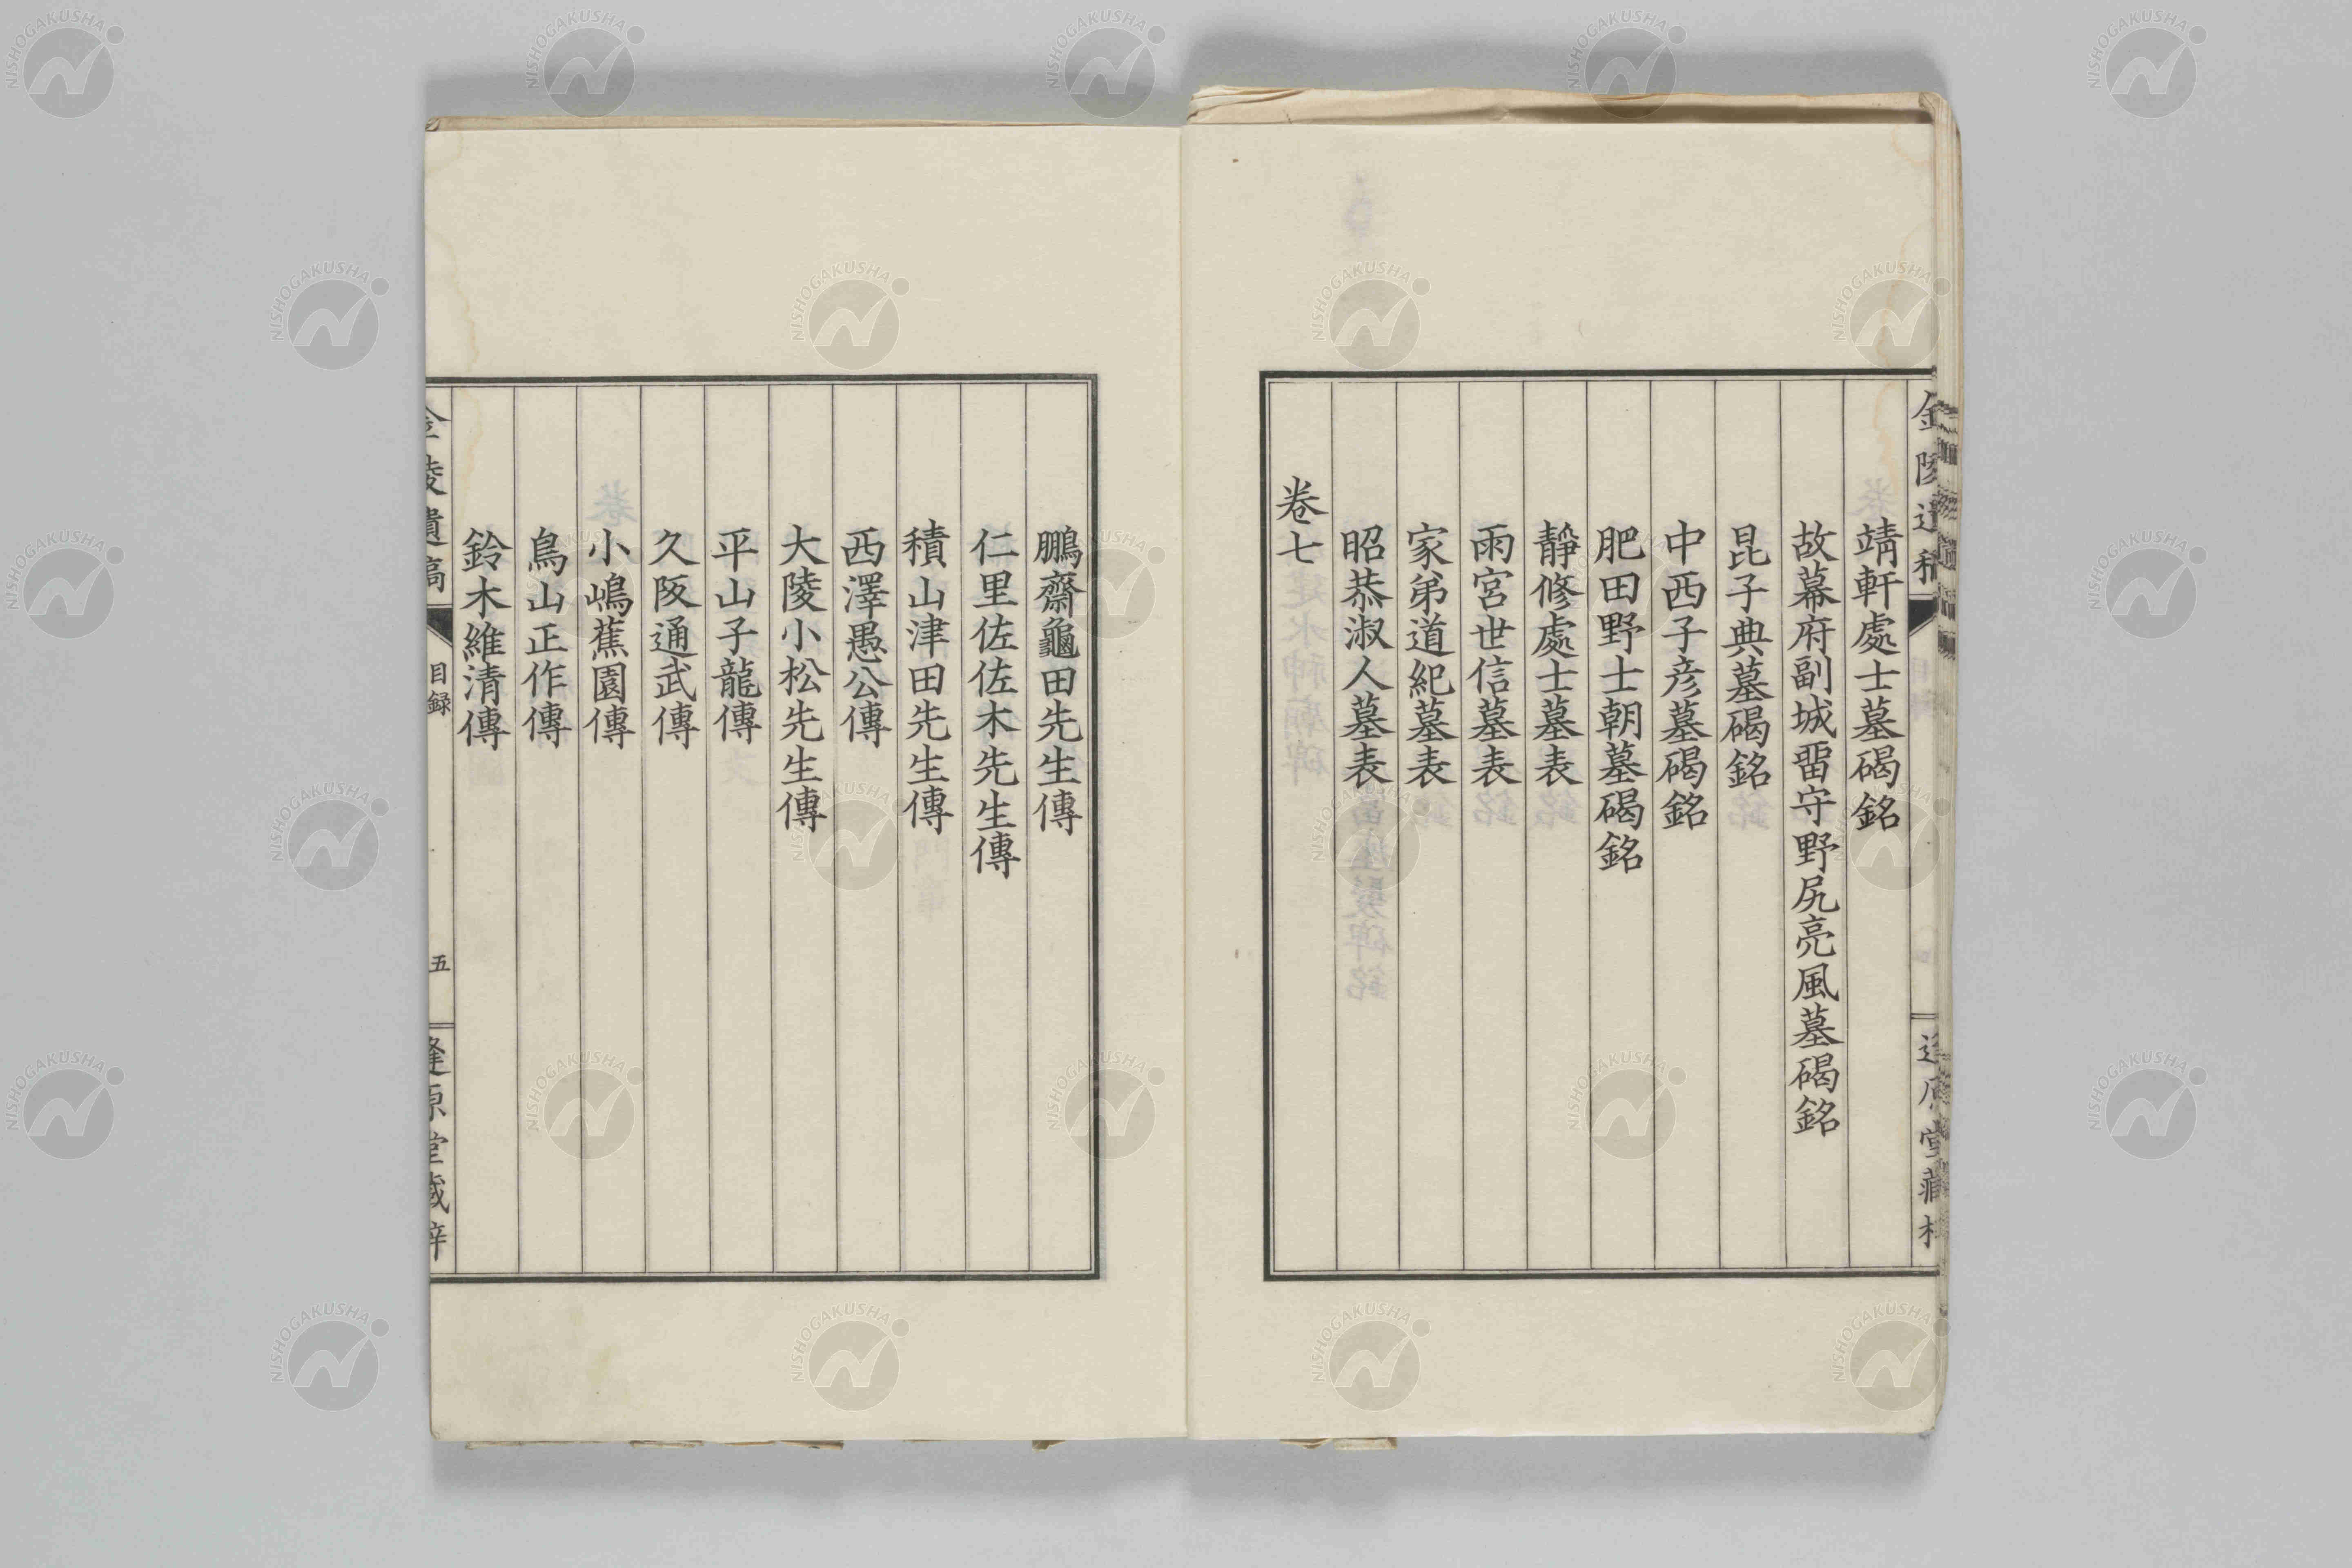 靖軒處士墓碣銘
故幕府副城畱守野尻亮風墓碣銘
昆子典墓碣銘
中西子彦墓碣銘
肥田野士朝墓碣銘
靜修處士墓表
雨宮世信墓表
家弟道紀墓表
昭恭淑人墓表
卷七
鵬齋龜田先生傳
仁里佐佐木先生傳
積山津田先生傳
西澤愚公傳
大陵小松先生傳
平山子龍傳
久阪通武傳
小嶋蕉園傳
鳥山正作傳
鈴木維清傳
金陵遺稿
目録
五
逢原堂藏梓
NISHOGAKUSHA